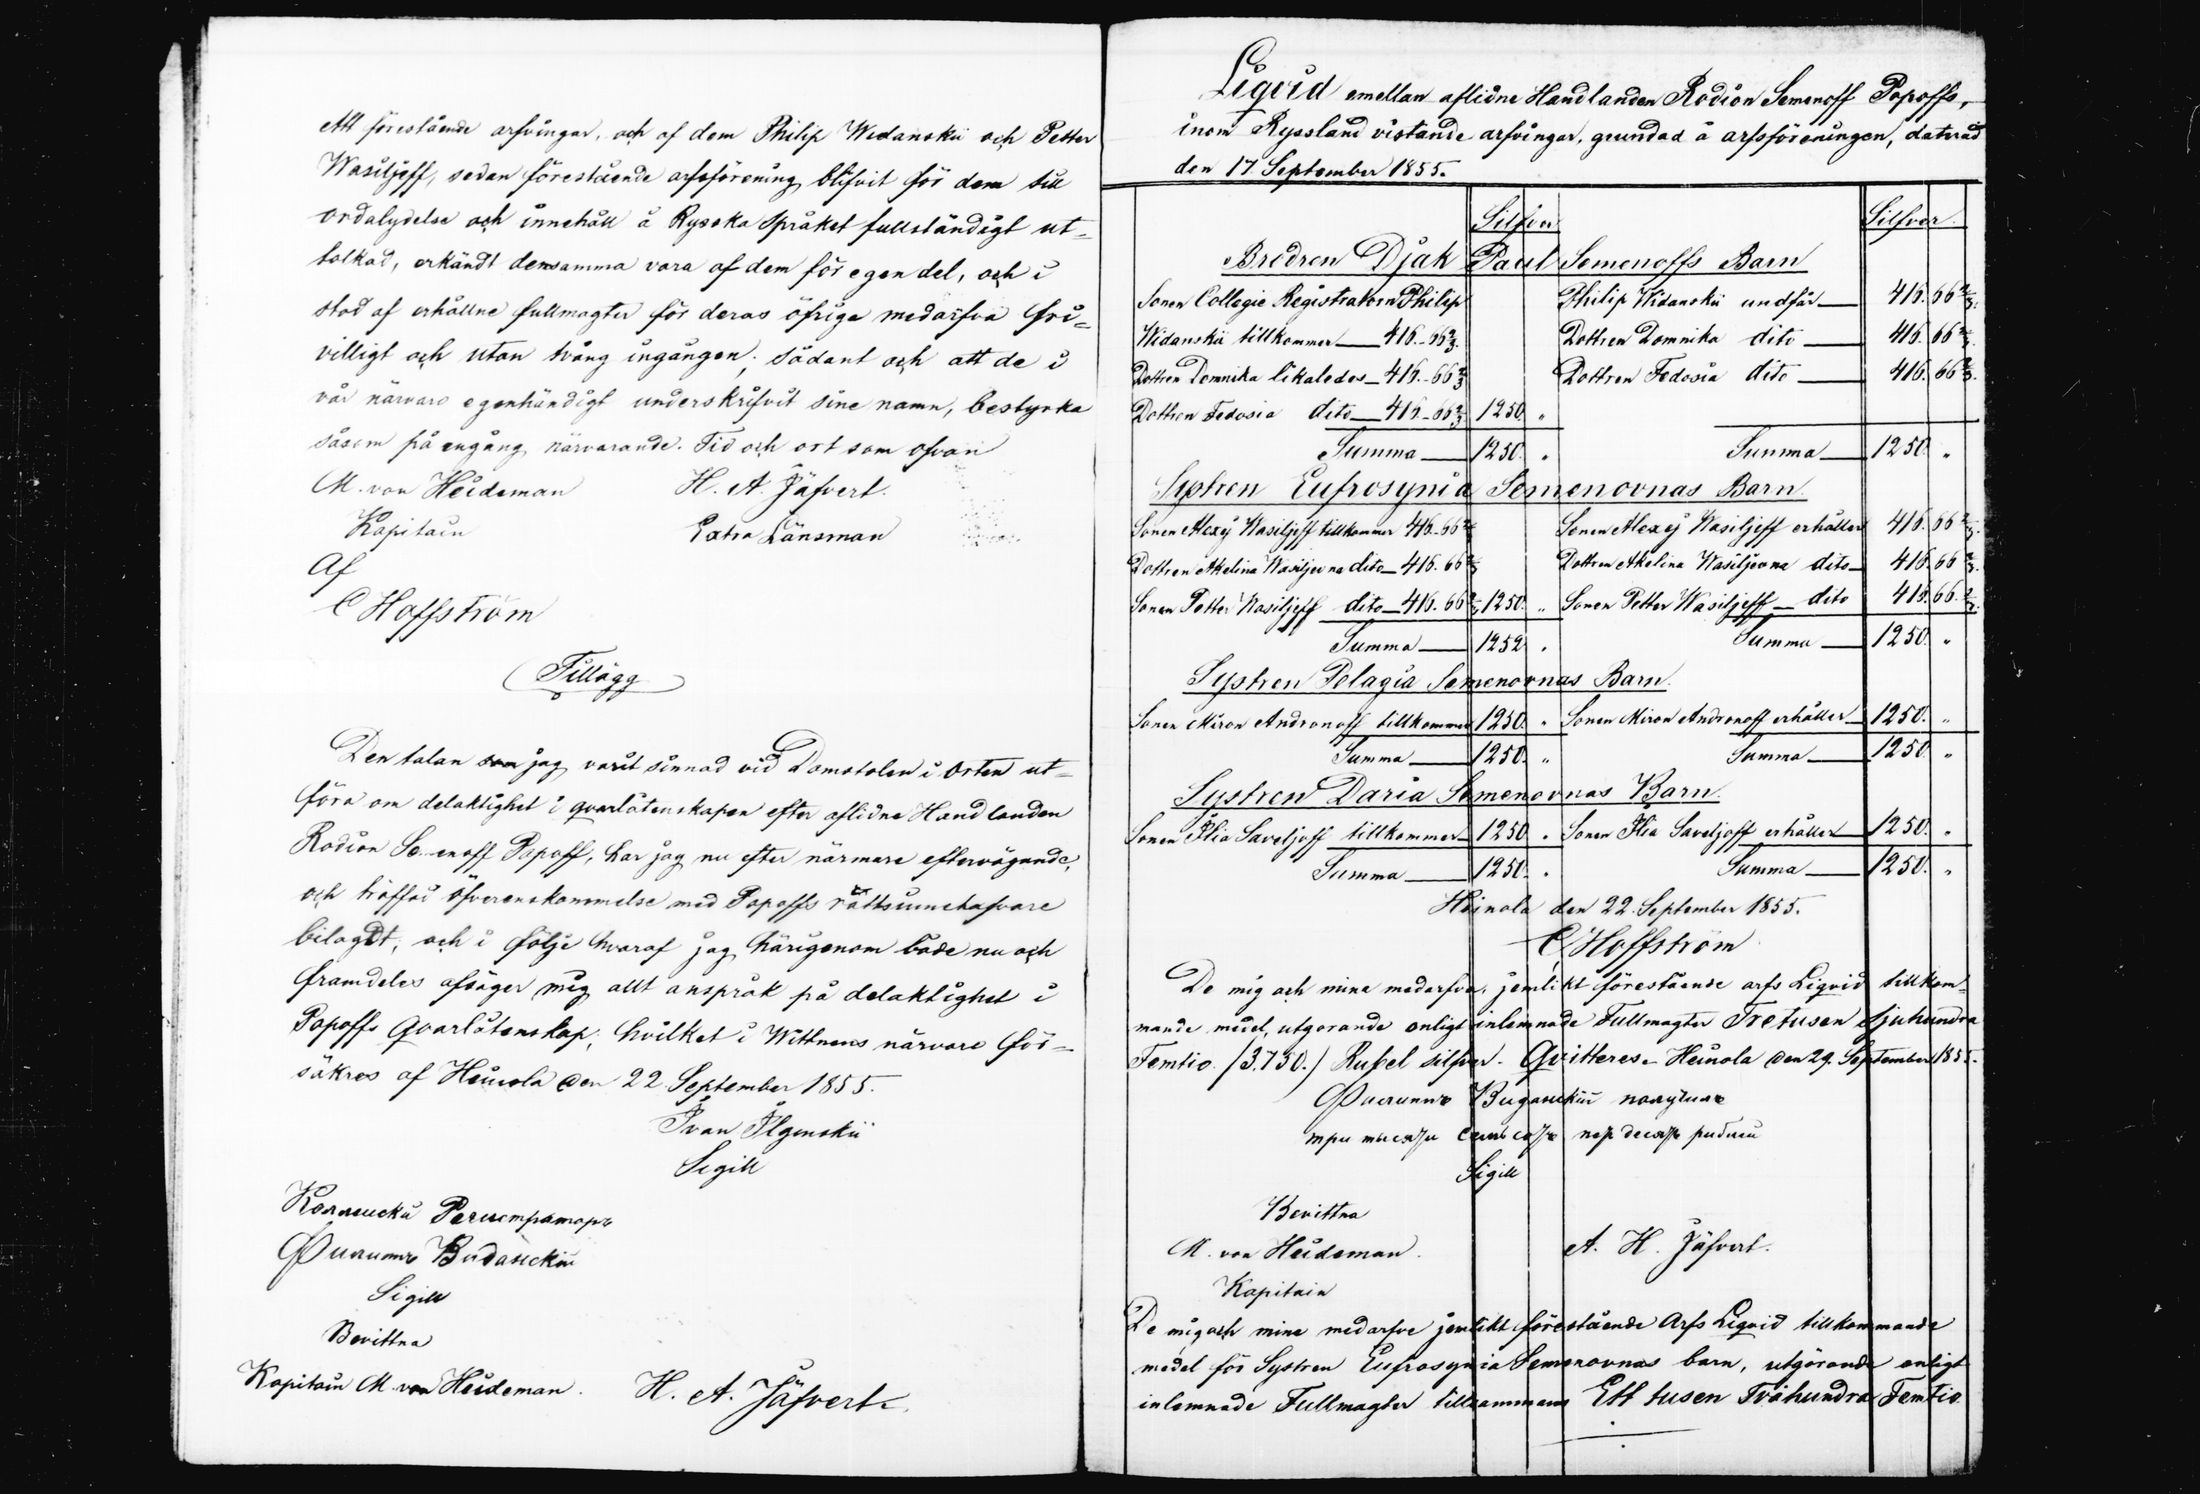 Att förestående arfvingar, och af dem Philip Widanskii och Petter
Wasiljeff, sedan förestående arfsförening blifvit för dem till
ordalydelse och innehåll å Ryska Språket fullständigt ut-
tolkad, erkändt densamma vara af dem för egen del, och i
stöd af erhållne fullmagter för deras öfrige medarfva fri-
villigt och utan tvång ingången; sådant och att de i
vår närvaro egenhändigt underskrifvit sine namn, bestyrka
såsom på engång närvarande. Tid och ort som ofvan
M. von Heideman H. A. Jäfvert.
Kapitain Extra Länsman
Af
C Hoffström
Tillägg
Den talan som jag varit sinnad vid Domstolen i orten ut-
föra om delaktighet i qvarlåtenskapen efter aflidne Handlanden
Rodion Se..enoff Popoff, har jag nu efter närmare eftervägande,
och träffad öfverenskommelse med Popoffs rättsinnehafvare
bilagdt, och i följe hvaraf jag härigenom både nu och
framdeles afsäger mig allt anspråk på delaktighet i
Popoffs Qvarlåtenskap; hvilket i Wittnens närvaro för-
säkres af Heinola den 22 September 1855.
Ivan Ilginskii
Sigill
Коллискій Регистраторъ
Филиппъ Видаискій
Sigill
Bevittna
Kapitain M. von Heideman. H. A. Jäfvert.
Liqvid emellan aflidne Handlanden Rodion Semenoff Popoffs,
inom Ryssland vistande arfvingar, grundad å arfsföreningen, daterad
den 17 September 1855.
Silfver Silfver.
Brodren Djak Paul Semenoffs Barn
Sonen Collegie Registratorn Philip Philip Widanskii undfår 416. 66 2/3.
Widanskii tillkommer 416. 66 2/3. Dottren Domnika dito 416. 66 2/3.
Dottren Domnika likaledes 416. 66 2/3 Dottren Fedosia dito 416. 66 2/3.
Dottren Fedosia dito 416. 66 2/3 1250 "
Summa 1250. " Summa 1250. "
Systren Eufrosynia Semenovnas Barn.
Sonen Alexej Wasiljeff tillkommer 416. 66 2/3 Sonen Alexej Wasiljeff erhåller 416. 66 2/3.
Dottren Akelina Wasiljevna dito 416. 66 2/3 Dottren Akelina Wasiljevna dito 416. 66 2/3.
Sonen Petter Wasiljeff dito 416. 66 2/3 1250. " Sonen Petter Wasiljeff dito 416. 66. 2/3.
Summa 1252 " Summa 1250. "
Systren Pelagia Semenovnas Barn.
Sonen Miron Andronoff tillkommer 1250. " Sonen Miron Andronoff erhåller 1250. "
Summa 1250. " Summa 1250 "
Systren Daria Semenovnas Barn.
Sonen Ilia Saveljoff tillkommer 1250 " Sonen Ilia Saveljoff erhåller 1250. "
Summa 1250. " Summa 1250. "
Heinola den 22. September 1855.
C Hoffström
De mig och mina medarfva, jemlikt förestående arfs Liqvid tillkom-
mande medel, utgörande enligt inlemnade Fullmagter Tretusen Sjuhundra
Femtio (3.750.) Rubel silfver. Qvitteres. Heinola den 29. September 1855.
Филиппъ Видаискій получилъ
три тысячи семь сотъ пять десятъ рубли
Sigill
Bevittna
M. von Heideman. A. H. Jäfvert.
Kapitain
De mig och mine medarfve jemlikt förestående Arfs Liqvid tillkommande
medel för Systren Eufrosynia Semenovnas barn, utgörande enligt
inlemnade Fullmagter tillsammans Ett tusen Tvåhundra Femtio